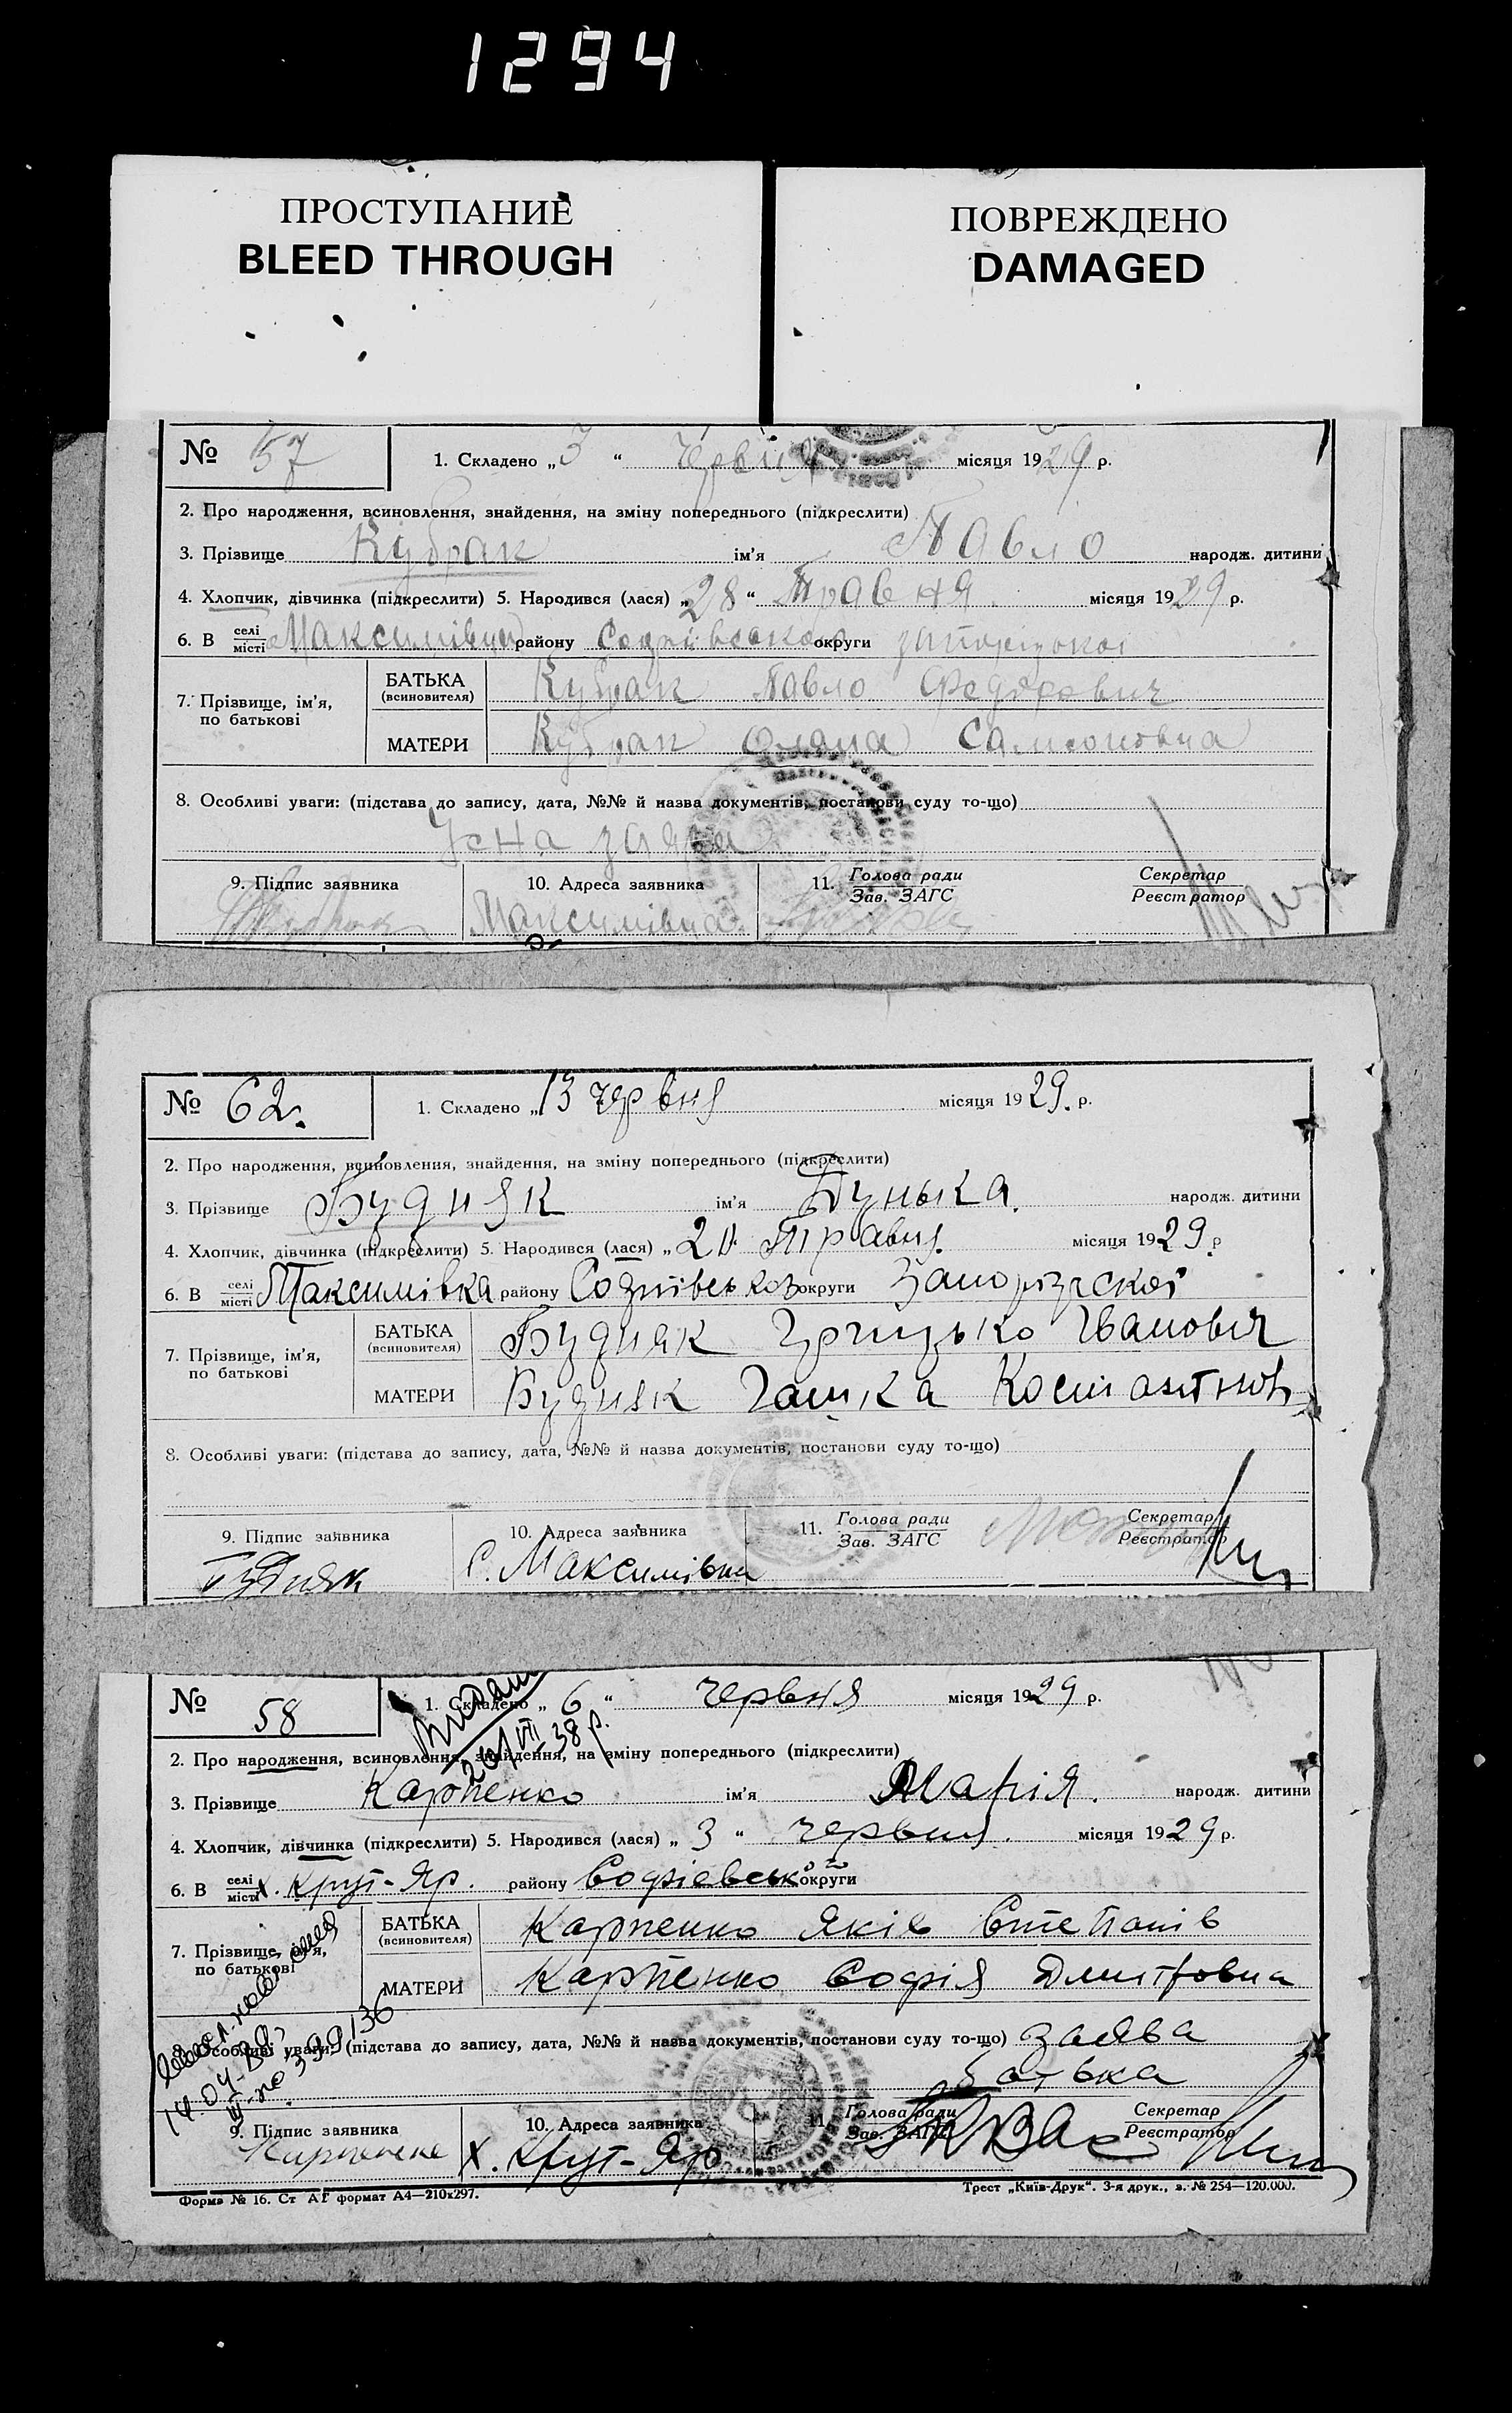 1294
ПРОСТУПАНИЕ
BLEED THROUGH
ПОВРЕЖДЕНО
DAMAGED
№ 57 1. Складено „3“ червня місяця 1929 р.
2. Про народження, всиновлення, знайдення, на зміну попереднього (підкреслити)
3. Прізвище Кубрак ім'я Павло народж. дитини
4. Хлопчик, дівчинка (підкреслити) 5. Народився (лася) „28“ Травня місяця 1929 р.
6. В селі місті Максимівци району округи
7. Прізвище, ім'я, по батькові БАТЬКА (всиновителя) Кубрак Павло Федорович
МАТЕРИ Кубрак Самсоновна
8. Особливі уваги: (підстава до запису, дата, №№ й назва документів, постанови суду то-що)
Усна заява
9. Підпис заявника 10. Адреса заявника 11. Голова ради Зав. ЗАГС Секретар Реєстратор
Максимівца
№ 62. 1. Складено „13 червня місяця 1929. р.
2. Про народження, всиновлення, знайдення, на зміну попереднього (підкреслити)
3. Прізвище Будняк ім'я Дунька. народж. дитини
4. Хлопчик, дівчинка (підкреслити) 5. Народився (лася) „20 Травня. місяця 1929 р
6. В селі місті Максимівка району округи
7. Прізвище, ім'я, по батькові БАТЬКА (всиновителя) Будняк Грицько Іванович
МАТЕРИ Будняк
8. Особливі уваги: (підстава до запису, дата, №№ й назва документів, постанови суду то-що)
9. Підпис заявника 10. Адреса заявника 11. Голова ради Зав. ЗАГС Секретар Реєстратор
Будняк С. Максимівка
№ 58 1. Складено „6“ червня місяця 1929 р.
26/VII 38 р.
2. Про народження, всиновлення, знайдення, на зміну попереднього (підкреслити)
3. Прізвище Карпенко ім'я Марія. народж. дитини
4. Хлопчик, дівчинка (підкреслити) 5. Народився (лася) „3“ червня. місяця 1929 р.
6. В селі місті х. Крут-Яр. району Софіевськой округи
7. Прізвище, ім'я, по батькові БАТЬКА (всиновителя) Карпенко Яків Степанів
МАТЕРИ Карпенко Софія Дмитровна
8. Особливі уваги: (підстава до запису, дата, №№ й назва документів, постанови суду то-що) заява
батька
9. Підпис заявника 10. Адреса заявника 11. Голова ради Зав. ЗАГС Секретар Реєстратор
Карпенко х. Крут-Яр
Форма № 16. Ст А1 формат А4—210х297. Трест „Київ-Друк“. 3-я друк., з. № 254—120.000.